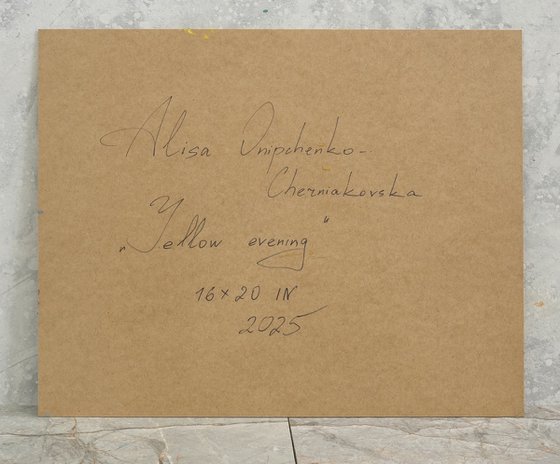 Alisa Onipchenko-
Cherniakovska
„Yellow evening“
16×20 IN
2025